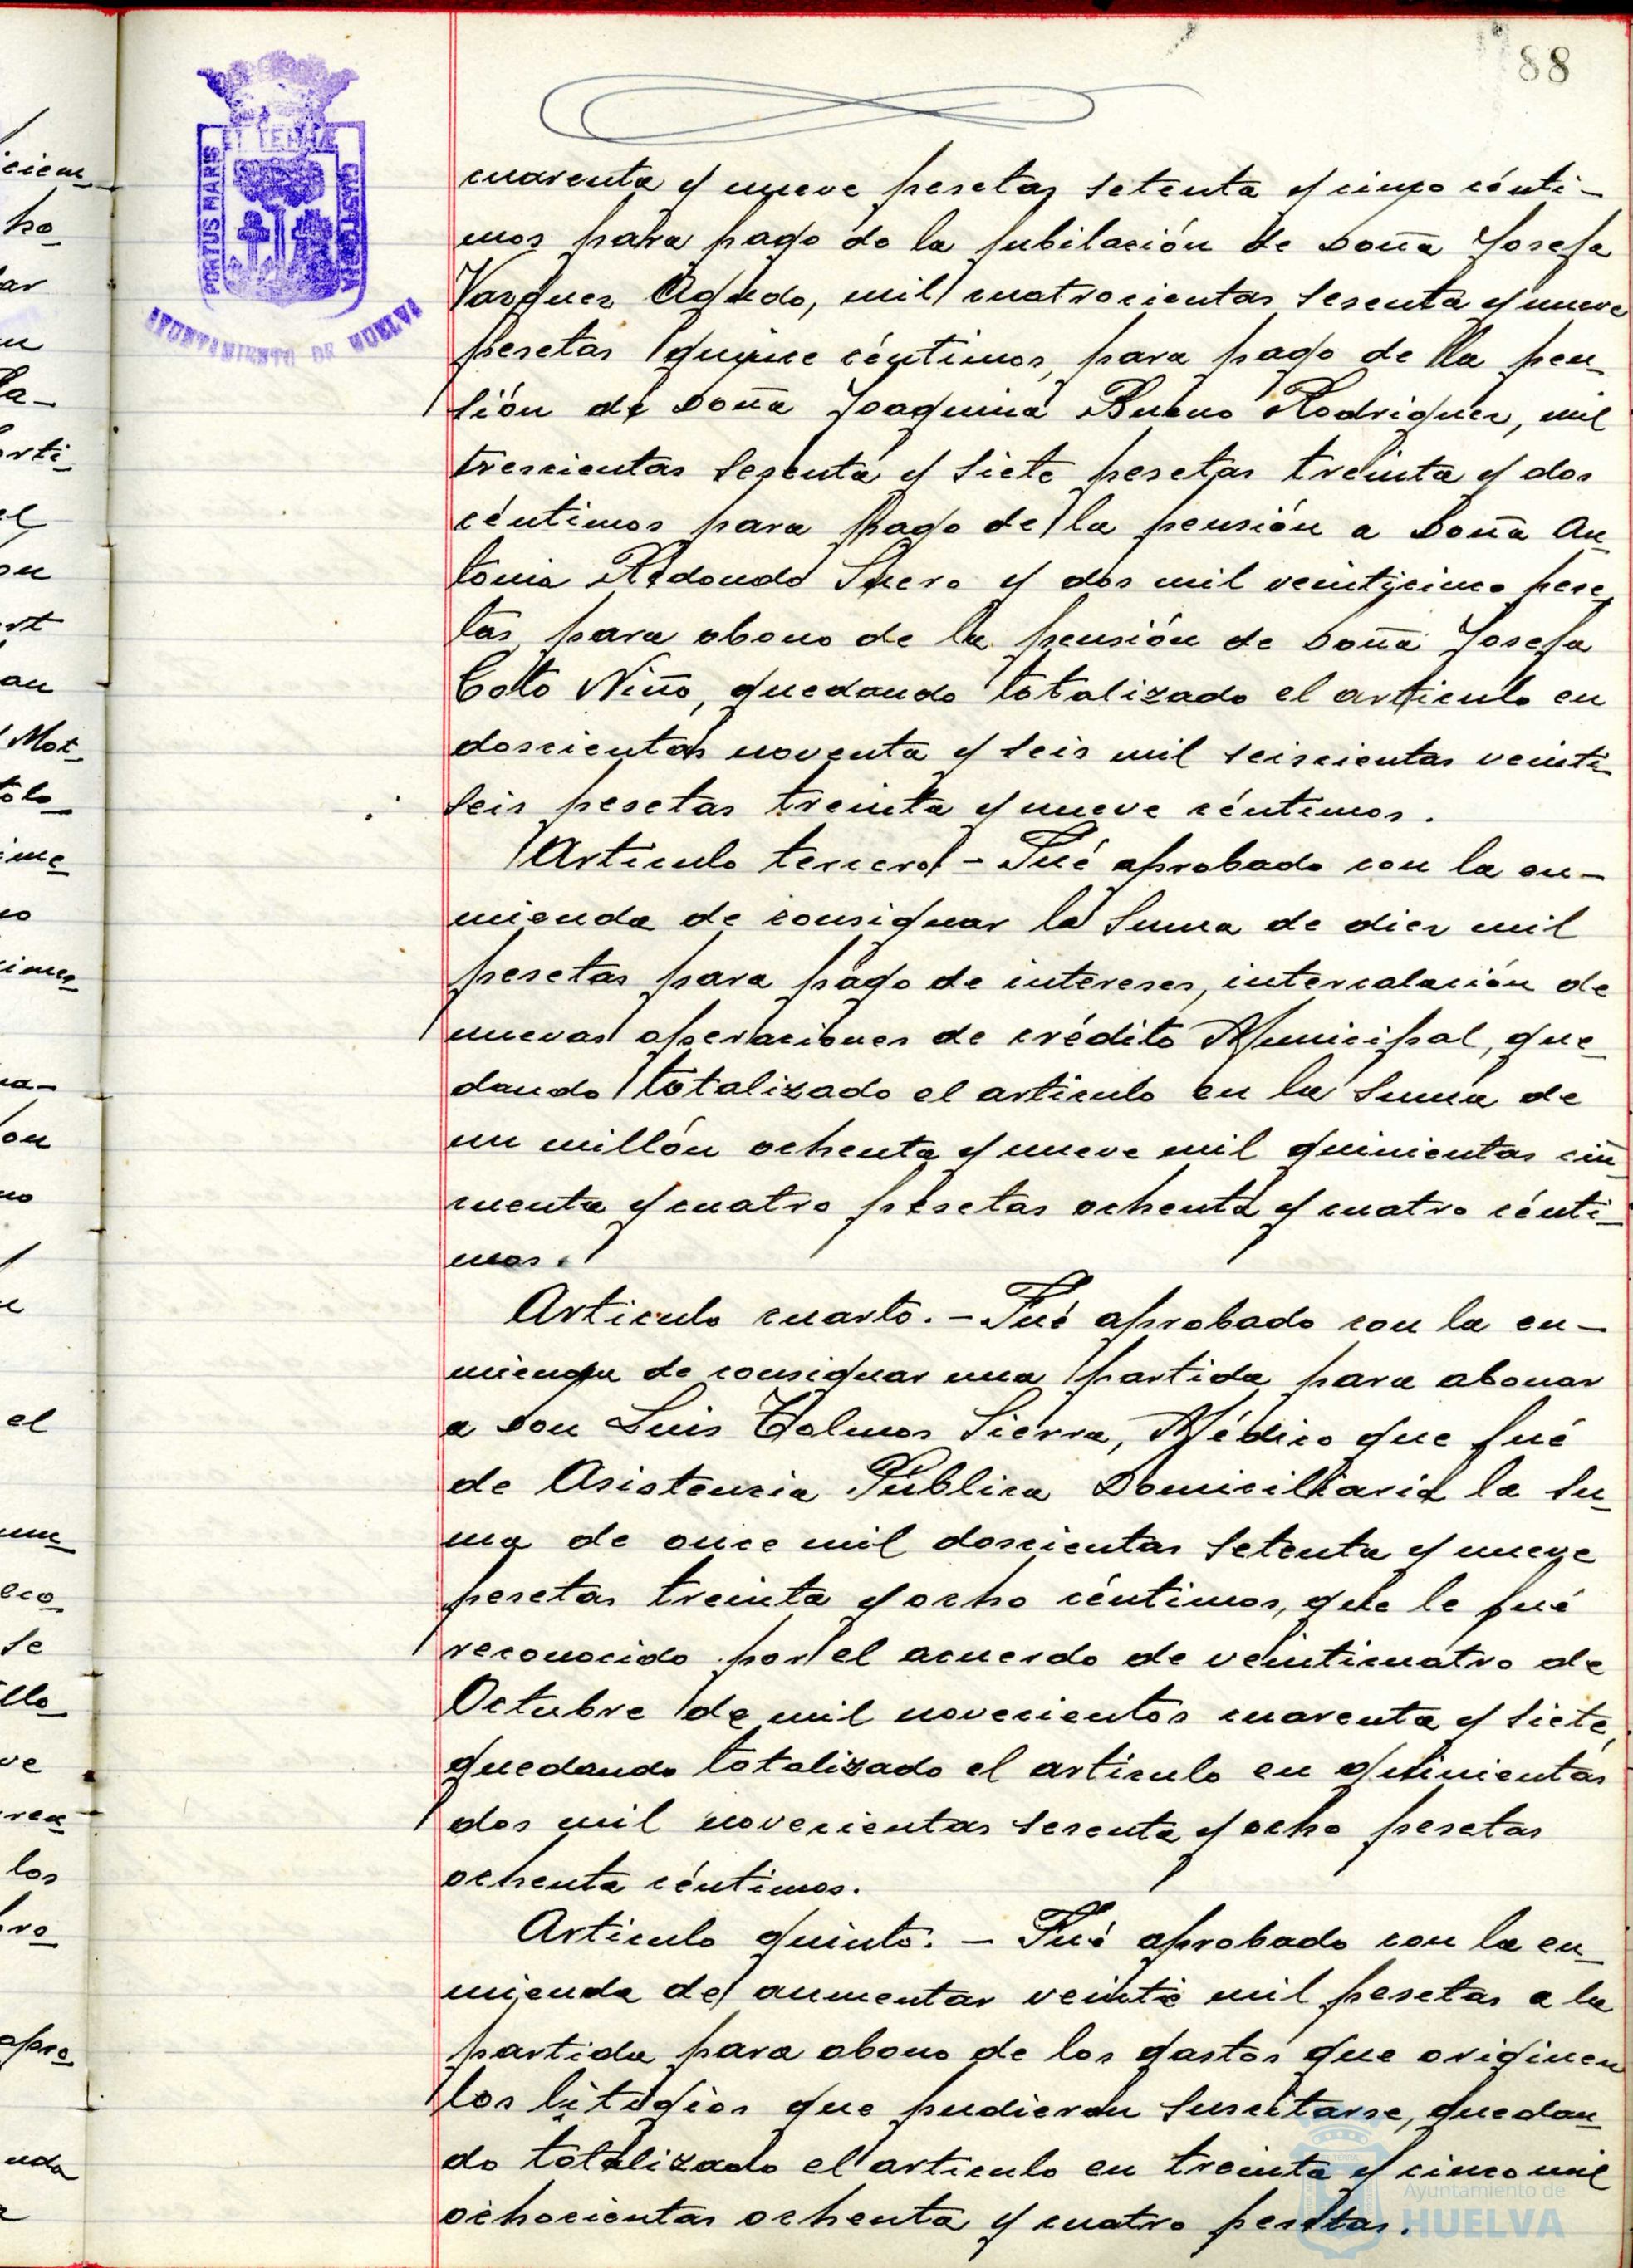 88
PORTUS MARIS
ET TERRAE
CUSTODIA
AYUNTAMIENTO DE HUELVA
cuarenta y nueve pesetas setenta y cinco cénti-
mos para pago de la jubilación de Doña Josefa
Vazquez Agudo, mil cuatrocientas sesenta y nueve
pesetas quince céntimos, para pago de la pen-
sión de Doña Joaquina Bueno Rodriguez, mil
trescientas sesenta y siete pesetas treinta y dos
céntimos para pago de la pensión a Doña An-
tonia Redondo Suero y dos mil veinticinco pese-
tas para abono de la pensión de Doña Josefa
Coto Niño, quedando totalizado el articulo en
doscientas noventa y seis mil seiscientas veinti-
seis pesetas treinta y nueve céntimos.
Articulo tercero - Fué aprobado con la en-
mienda de consignar la suma de diez mil
pesetas para pago de intereses, intercalación de
nuevas operaciones de crédito Municipal, que-
dando totalizado el articulo en la suma de
un millón ochenta y nueve mil quinientas cin-
cuenta y cuatro pesetas ochenta y cuatro cénti-
mos.
Articulo cuarto. - Fué aprobado con la en-
mienda de consignar una partida para abonar
a Don Luis Sierra, Médico que fué
de Asistencia Pública Domiciliaria la su-
ma de once mil doscientas setenta y nueve
pesetas treinta y ocho céntimos, que le fué
reconocido por el acuerdo de veinticuatro de
Octubre de mil novecientos cuarenta y siete,
quedando totalizado el articulo en quinientas
dos mil novecientas sesenta y ocho pesetas
ochenta céntimos.
Articulo quinto. - Fué aprobado con la en-
mienda de aumentar veinte mil pesetas a la
partida para abono de los gastos que originen
los litigios que pudieran suscitarse, quedan-
do totalizado el articulo en treinta y cinco mil
ochocientas ochenta y cuatro pesetas.
Ayuntamiento de
HUELVA